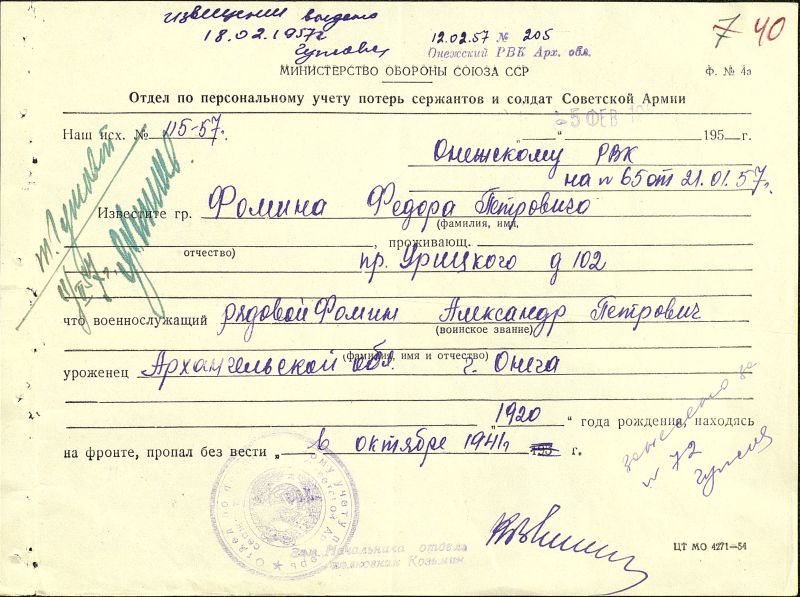 Извещении выдано
18.02.1957г.
12.02.57 № 205
Онежский РВК Арх. обл.
7 40
МИНИСТЕРСТВО ОБОРОНЫ СОЮЗА ССР
Ф. № 4а
Отдел по персональному учету потерь сержантов и солдат Советской Армии
5 ФЕВ
Наш исх. № 115-57г.
„ “ 195 г.
Онежскому РВК
на № 65 от 21.01.57г.
Известите гр. Фомина Федора Петровича
(фамилия, имя,
, проживающ.
отчество)
пр. Урицкого д 102
что военнослужащий рядовой Фомин Александр Петрович
(воинское звание)
(фамилия, имя и отчество)
уроженец Архангельской обл. г. Онега
„1920“ года рождения, находясь
на фронте, пропал без вести „в октябре 1941г 195 г.
занесено за
№ 72
Отдел по персональному учету потерь
Зам. Начальника отдела
полковник Козьмин
ЦТ МО 4271—54